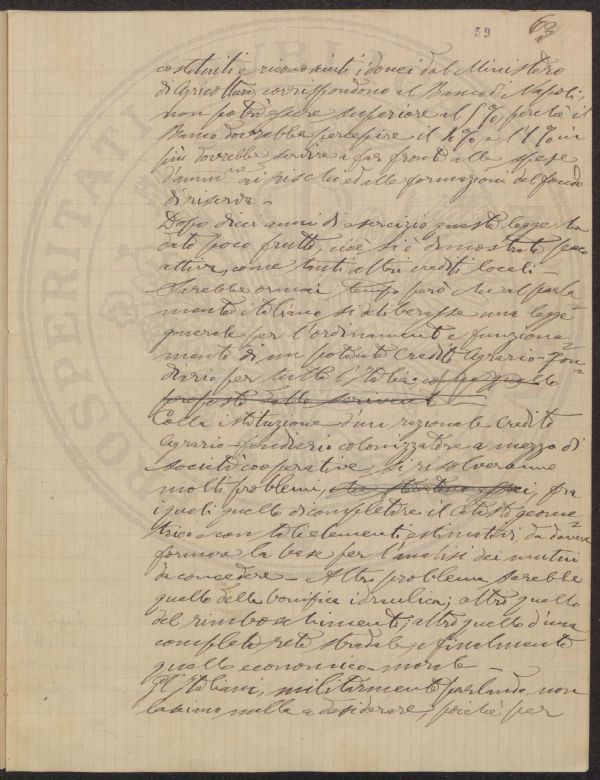 59 63
costituiti e riconosciuti idonei dal Ministero
di Agricoltura, corrispondono al Banco di Napoli,
non potrà essere superiore al 5%, poichè il
Banco dovrebbe percepire il 4% e l'1% in
più dovrebbe servire a far fronte alle spese
d'amm.ne ai rischi ed alla formazione del fondo
di riserva –
Dopo dieci anni di esercizio questa legge ha
dato poco frutto, cioè si è dimostrata poco
attiva, come tanti altri crediti locali –
Sarebbe ormai tempo però che al parla
mento italiano si deliberasse una legge
generale per l'ordinamento e funziona
mento di un potente Credito Agrario-Fon=
diario per tutta l'Italia,
proposto dallo scrivente –
Colla istituzione d'un razionale Credito
Agrario-fondiario colonizzatore a mezzo di
società cooperative si risolveranno
molti problemi, fra
i quali quello di completare il Catasto geome=
trico con tali elementi estimativi, da dovere
formare la base per l'analisi dei mutui
da concedere – Altro problema sarebbe
quello della bonifica idraulica; altro quello
del rimboschimento; altro quello d'una
completa rete stradale, e finalmente
quello economico-morale –
Gl'Italiani, militarmente parlando, non
lasciano nulla a desiderare, poichè per
PROSPERITATI PUBLI